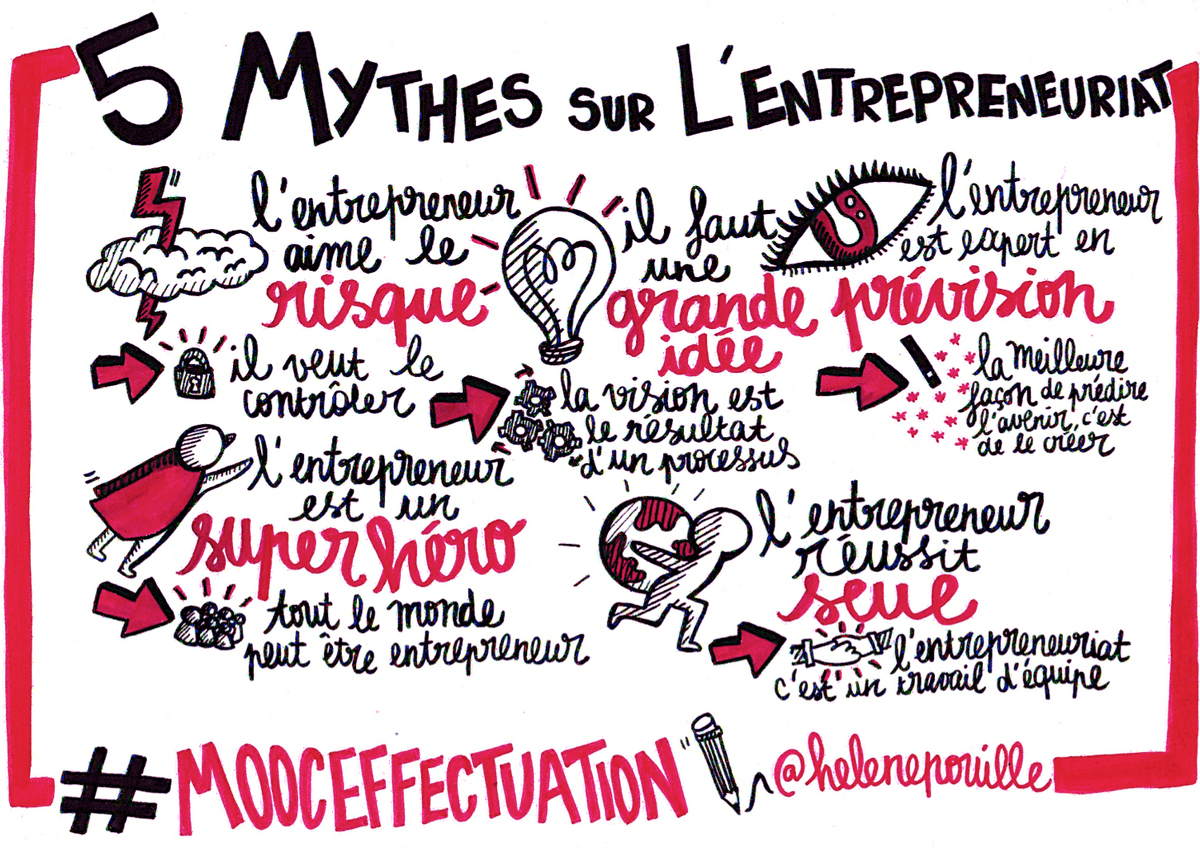 5 MYTHES SUR L'ENTREPRENEURIAT
l'entrepreneur
aime le
risque
il veut le
contrôler
il faut
une
grande
idée
la vision est
le résultat
d'un processus
l'entrepreneur
est expert en
prévision
la meilleure
façon de prédire
l'avenir, c'est
de le créer
l'entrepreneur
est un
super héro
tout le monde
peut être entrepreneur
l'entrepreneur
réussit
seul
l'entrepreneuriat
c'est un travail d'équipe
#MOOCEFFECTUATION
@helenepouille